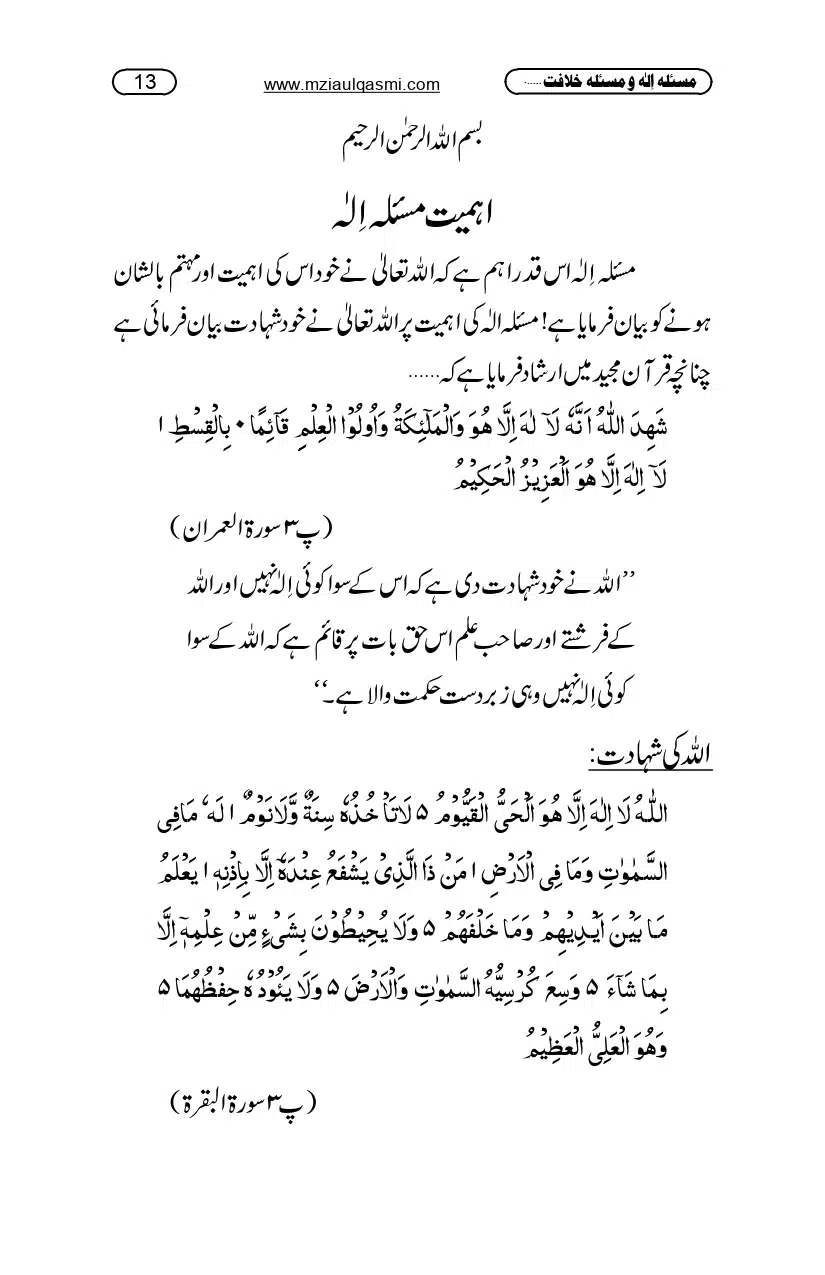 مسئلہ اِلٰہ و مسئلہ خلافت ...... www.mziaulqasmi.com 13
بسم اللہ الرحمٰن الرحیم
اہمیت مسئلہ اِلٰہ
مسئلہ اِلٰہ اس قدر اہم ہے کہ اللہ تعالیٰ نے خود اس کی اہمیت اور مہتم بالشان
ہونے کو بیان فرمایا ہے! مسئلہ الٰہ کی اہمیت پر اللہ تعالیٰ نے خود شہادت بیان فرمائی ہے
چنانچہ قرآن مجید میں ارشاد فرمایا ہے کہ ......
شَهِدَ اللّٰهُ اَنَّهٗ لَآ لٰهَ اِلَّا هُوَ وَالْمَلٰٓئِكَةُ وَاُولُوا الْعِلْمِ قَآئِمًا ۰ بِالْقِسْطِ ا
لَآ اِلٰهَ اِلَّا هُوَ الْعَزِيْزُ الْحَكِيْمُ
(پ ۳ سورۃ العمران)
’’اللہ نے خود شہادت دی ہے کہ اس کے سوا کوئی اِلٰہ نہیں اور اللہ
کے فرشتے اور صاحب علم اس حق بات پر قائم ہے کہ اللہ کے سوا
کوئی اِلٰہ نہیں وہی زبردست حکمت والا ہے۔‘‘
اللہ کی شہادت:
اللّٰهُ لَا اِلٰهَ اِلَّا هُوَ الْحَيُّ الْقَيُّوْمُ ۵ لَاتَاْ خُذُهٗ سِنَةٌ وَّلَانَوْمٌ ا لَهٗ مَافِی
السَّمٰوٰتِ وَمَا فِی الْاَرْضِ ا مَنْ ذَا الَّذِیْ يَشْفَعُ عِنْدَهٗٓ اِلَّا بِاِذْنِهٖ ا يَعْلَمُ
مَا بَيْنَ اَيْدِيْهِمْ وَمَا خَلْفَهُمْ ۵ وَلَا يُحِيْطُوْنَ بِشَیْءٍ مِّنْ عِلْمِهٖٓ اِلَّا
بِمَا شَآءَ ۵ وَسِعَ كُرْسِيُّهُ السَّمٰوٰتِ وَالْاَرْضَ ۵ وَلَا يَئُوْدُهٗ حِفْظُهُمَا ۵
وَهُوَ الْعَلِیُّ الْعَظِيْمُ
(پ ۳ سورۃ البقرۃ)